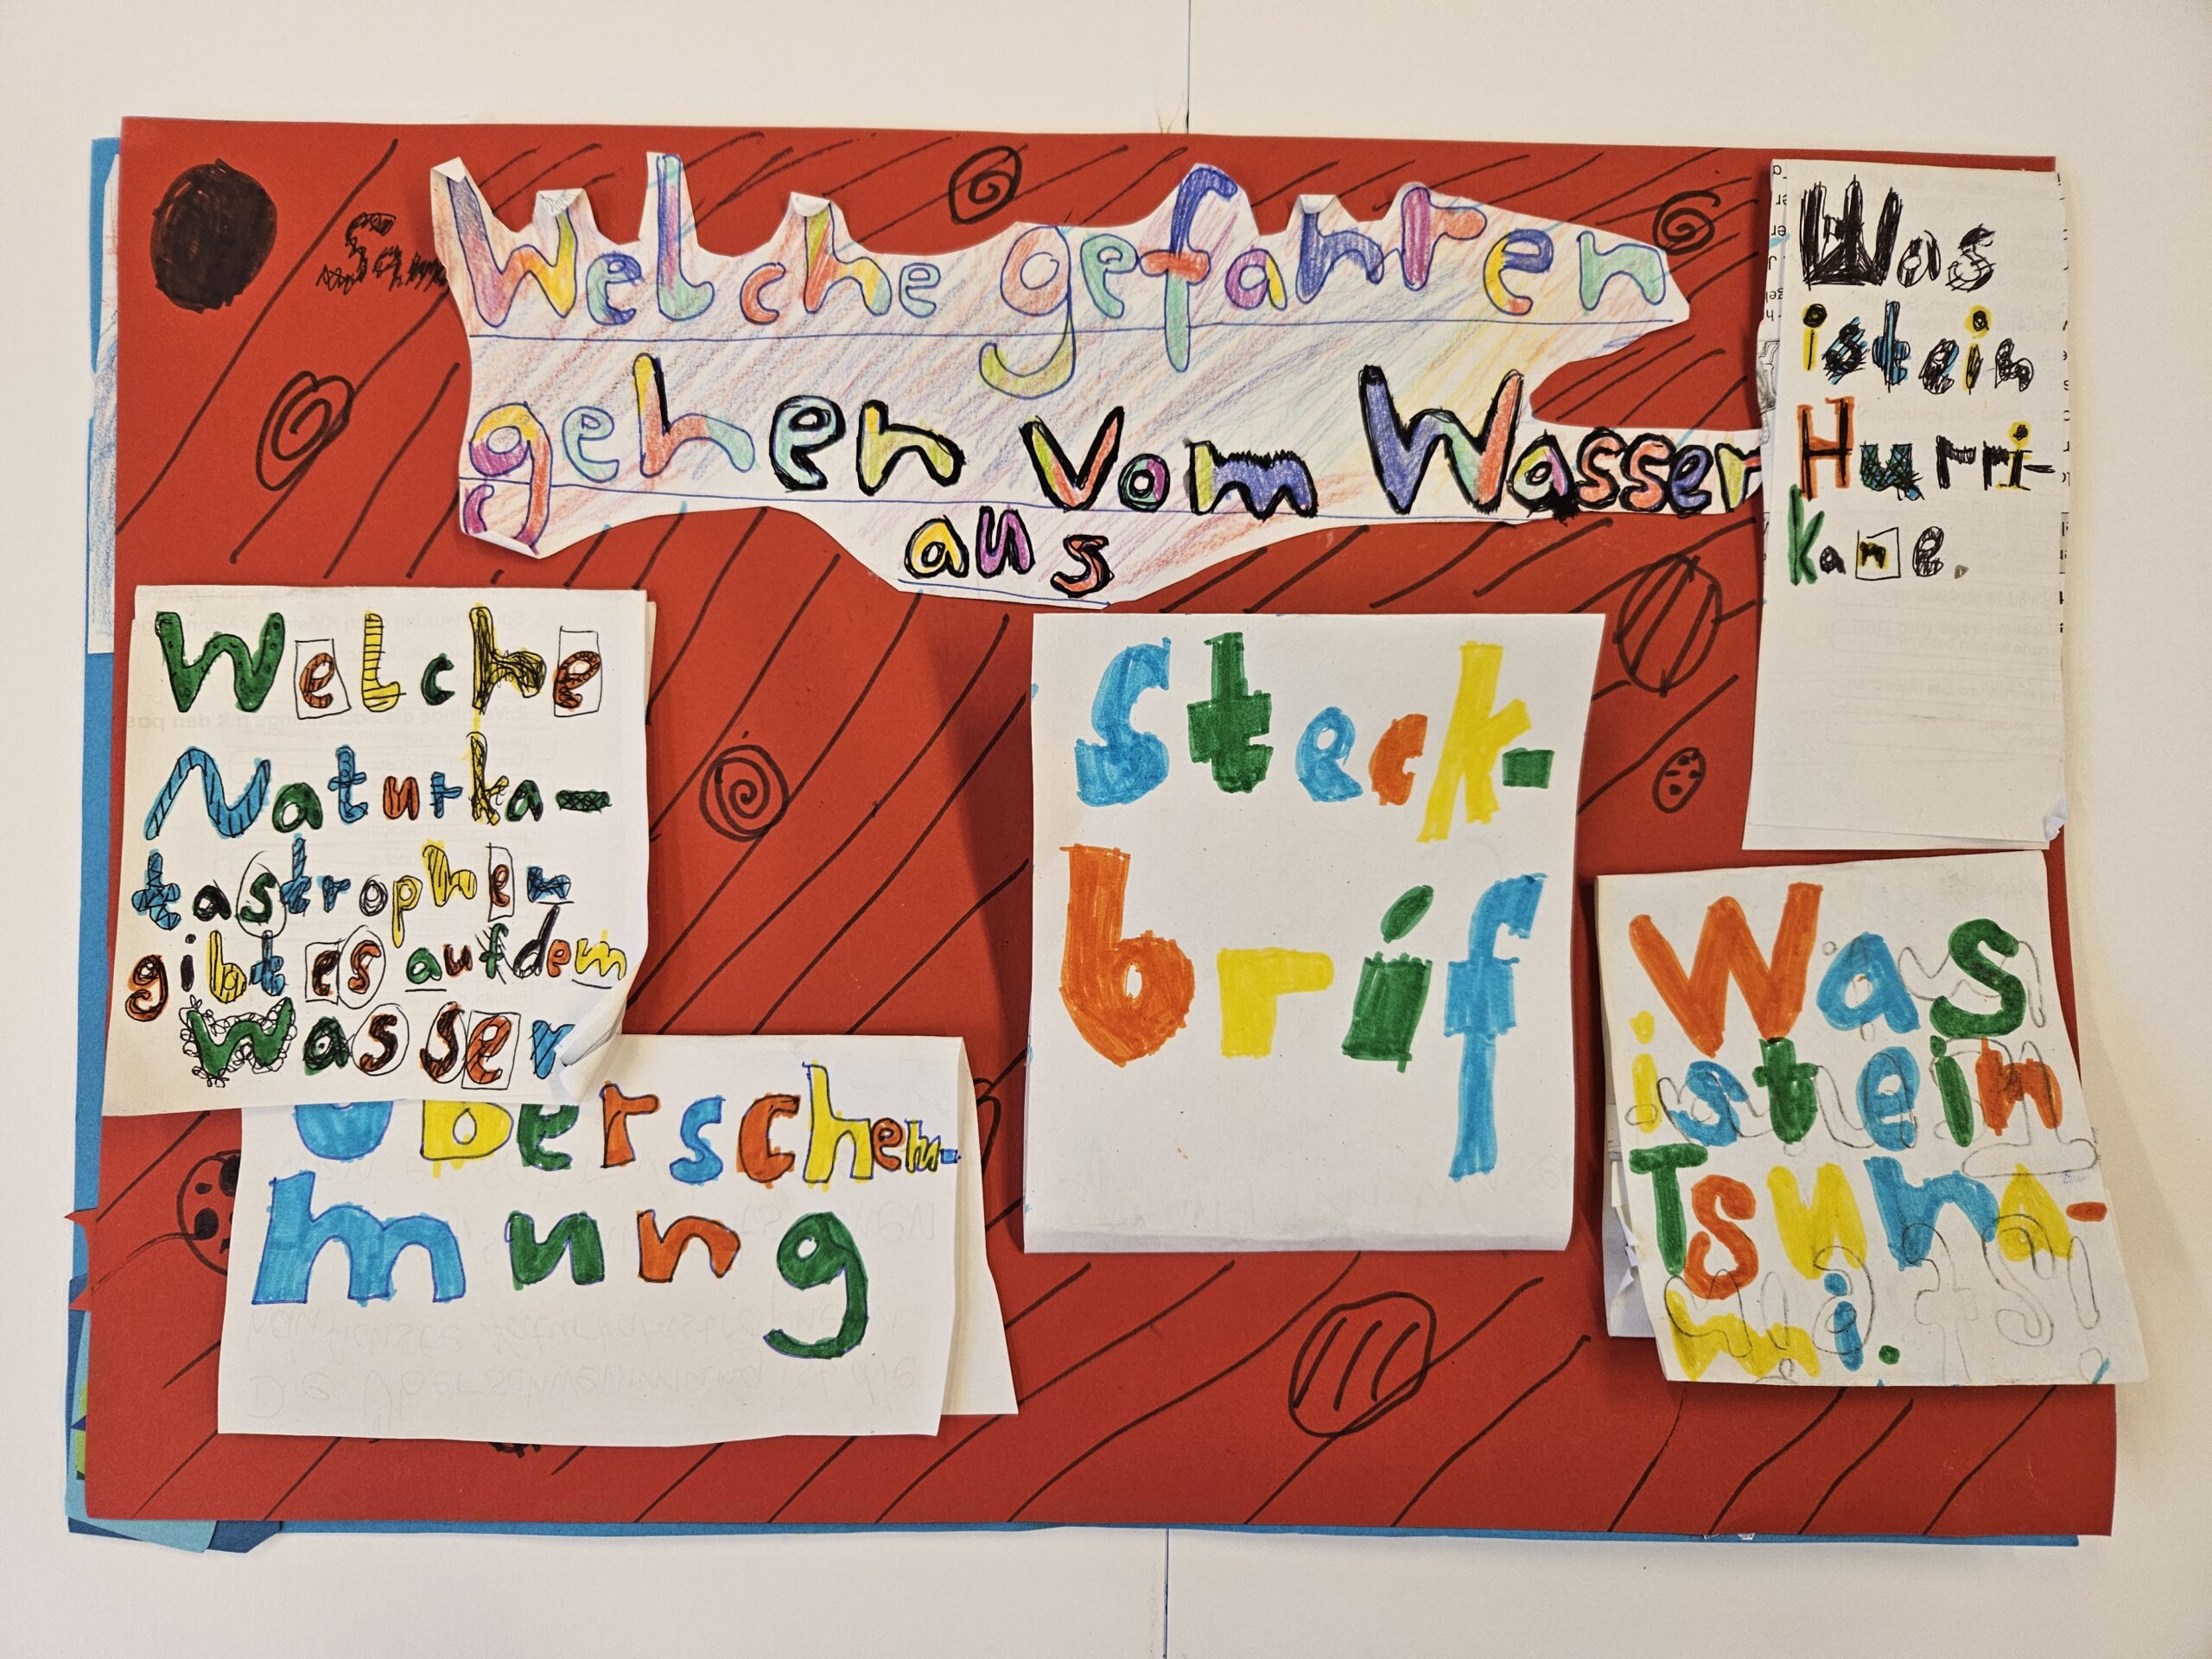 Welche gefahren
gehen vom Wasser
aus
Was
ist ein
Hurri-
kane.
Welche
Naturka-
tastrophen
gibt es auf dem
Wasser
Steck-
brif
Überschem-
mung
Was
ist ein
Tsuna-
mi.